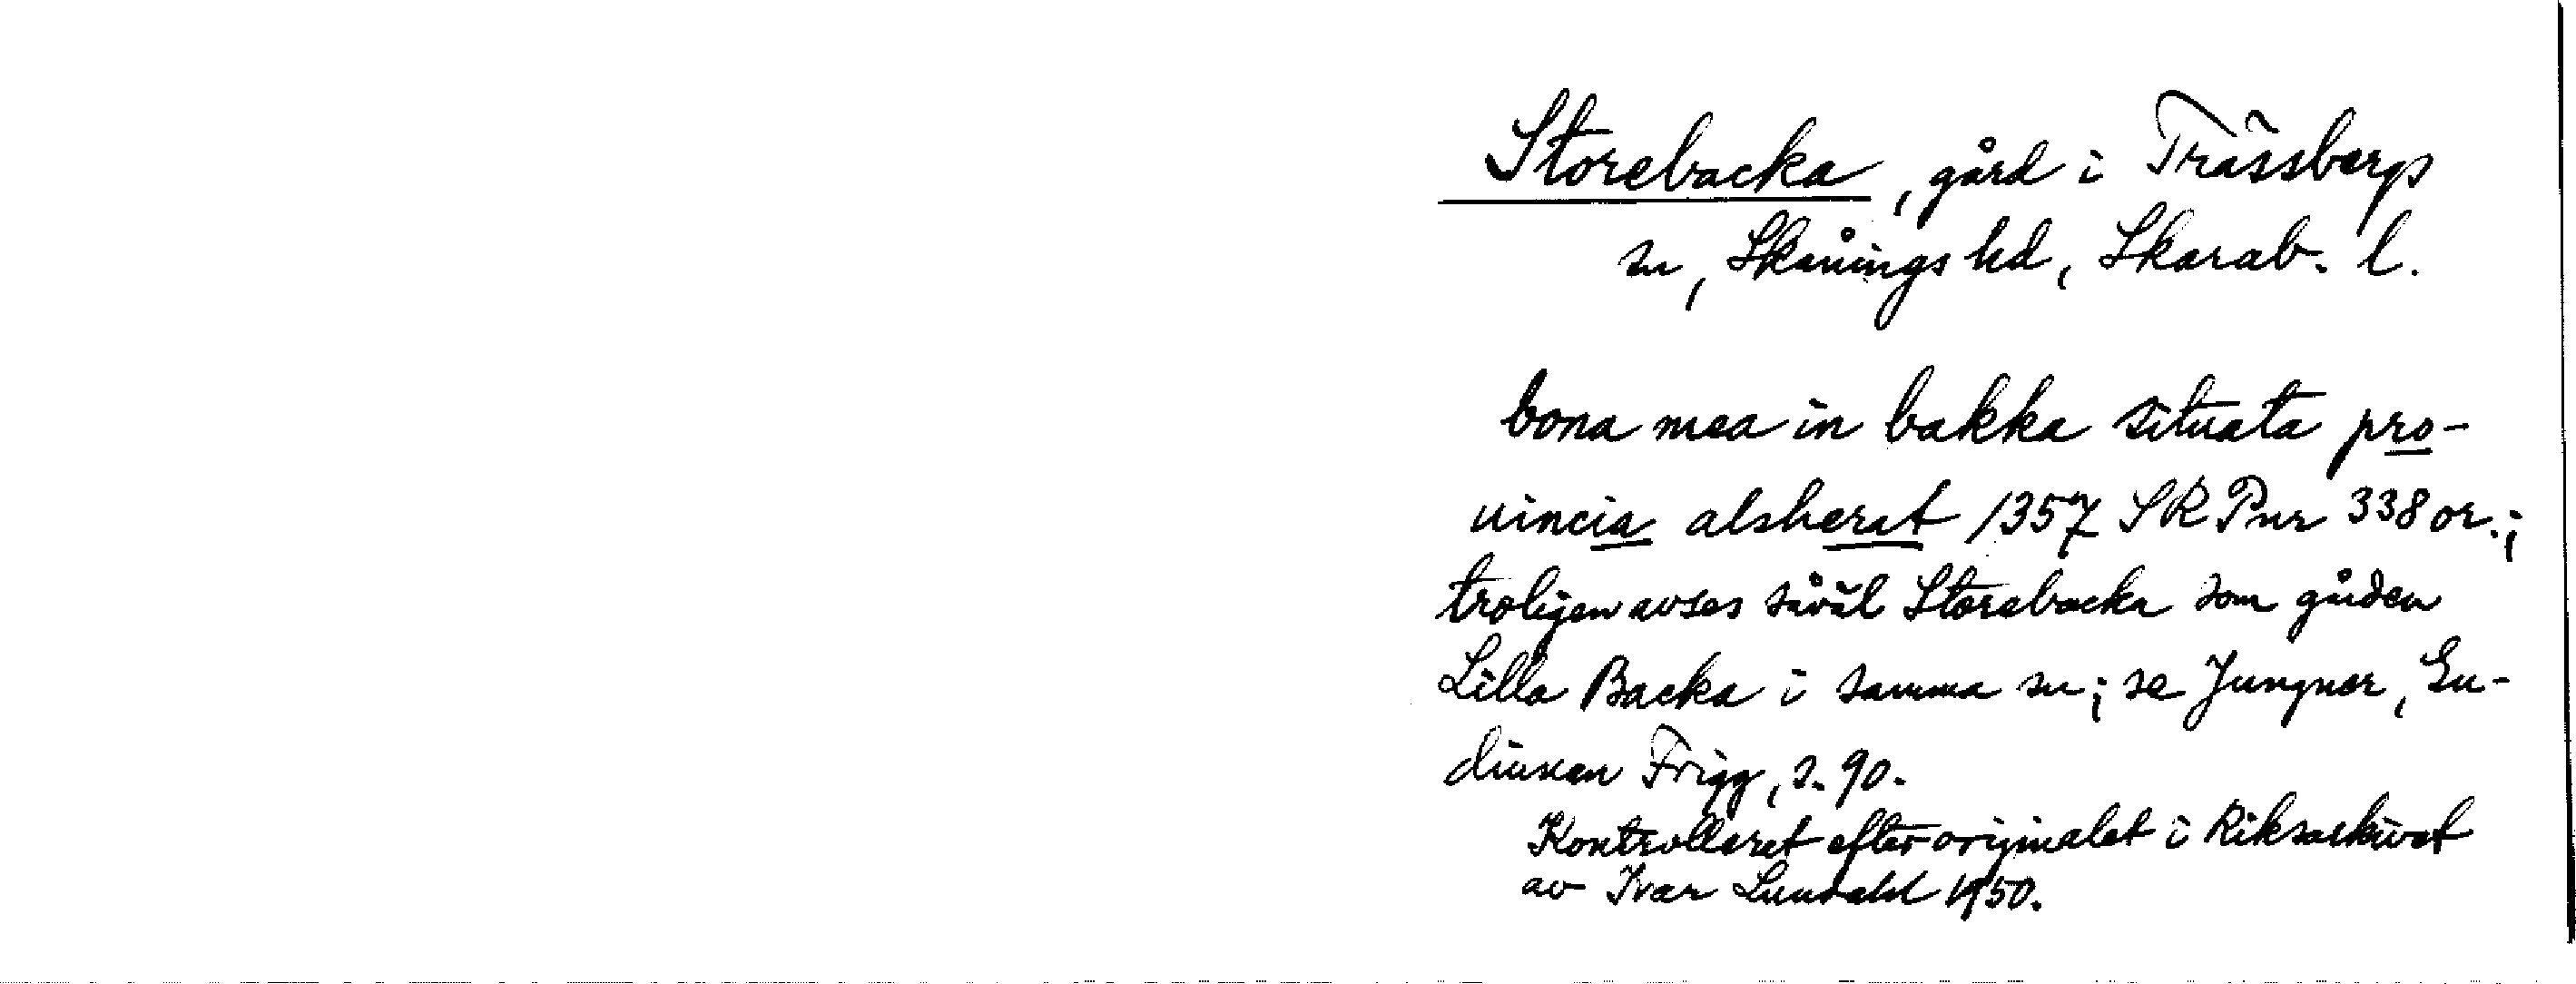 Storebacka, gård i Trässbergs
sn, Skånings hd, Skarab. l.
bona mea in bakka situata pro-
uincia alsherat 1357 SRPnr 338 or.;
troligen avses såväl Storebacka som gården
Lilla Backa i samma sn; se Jungner, Gu-
dinnan Frigg, s. 90.
Kontrollerat efter originalet i Riksarkivet
av Ivar Lundahl 1950.